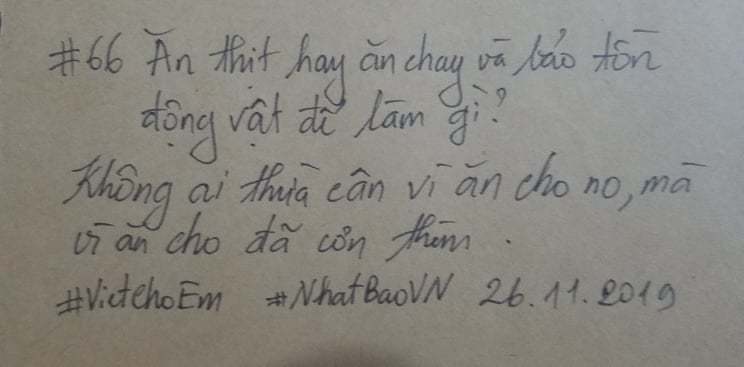 #66 Ăn thịt hay ăn chay và bảo tồn
động vật để làm gì?
Không ai thừa cân vì ăn cho no, mà
vì ăn cho đã cơn thèm.
#VietchoEm #NhatBaoVN 26.11.2019